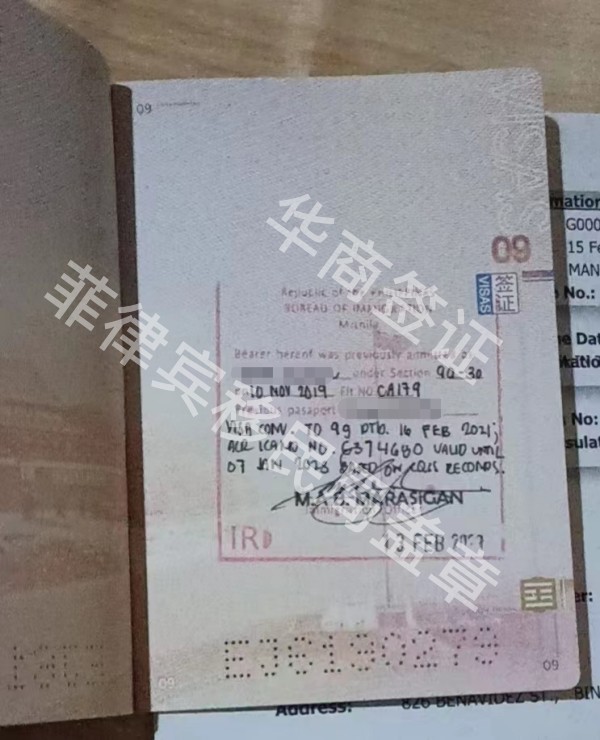 09
09
VISAS
签证
华商签证
菲律宾移民局签章
Republic of the Philippines
BUREAU OF IMMIGRATION
Manila
Bearer hereof was previously admitted as
under Section 9a-30
on 10 NOV 2019 Flt NO. CA179
Previous passport
VISA CONV. TO 9g DTD. 16 FEB 2021;
ACR ICARD NO. G374680 VALID UNTIL
07 JAN 2023 BASED ON RECORDS.
MARASIGAN
Immigration
FEB 2023
EJ6190279
09
09
mation
G000
15 Fe
MAN
No.:
e Dat
No.:
sulat
er:
Address: 826 BENAVIDEZ ST., BIN